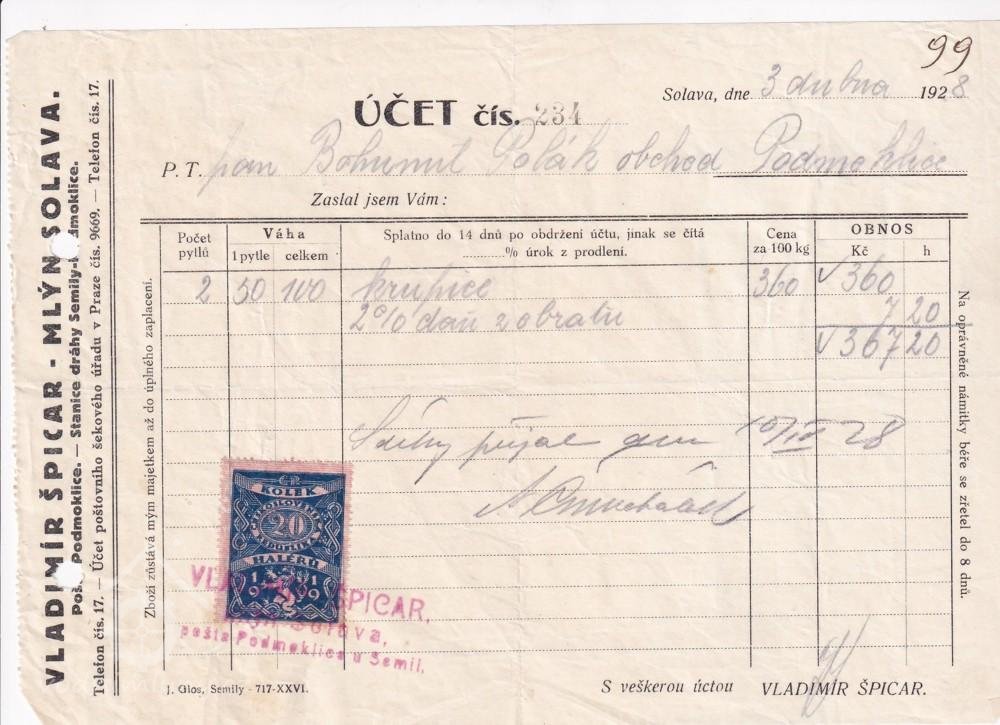 99
Solava, dne 3 dubna 1928
ÚČET čís. 234
P. T. pan Bohumil Polák obchod Podmoklice
Zaslal jsem Vám:
VLADIMÍR ŠPICAR - MLÝN SOLAVA.
Pošta Podmoklice. — Stanice dráhy Semily-Podmoklice.
Telefon čís. 17. — Účet poštovního šekového úřadu v Praze čís. 9669. — Telefon čís. 17.
Zboží zůstává mým majetkem až do úplného zaplacení.
Počet pytlů Váha 1 pytle celkem Splatno do 14 dnů po obdržení účtu, jinak se čítá
........% úrok z prodlení. Cena za 100 kg OBNOS Kč h
2 50 100 krupice 360 360
2% daň z obratu 7 20
367 20
Na oprávněné námitky béře se zřetel do 8 dnů.
přijal dne 10/IV 28
ČR
KOLEK
ČESKOSLOVENSKÁ
20
REPUBLIKA
HALÉŘŮ
1919
VLADIMÍR ŠPICAR,
Solava,
pošta Podmoklice u Semil.
J. Glos, Semily - 717-XXVI.
S veškerou úctou VLADIMÍR ŠPICAR.